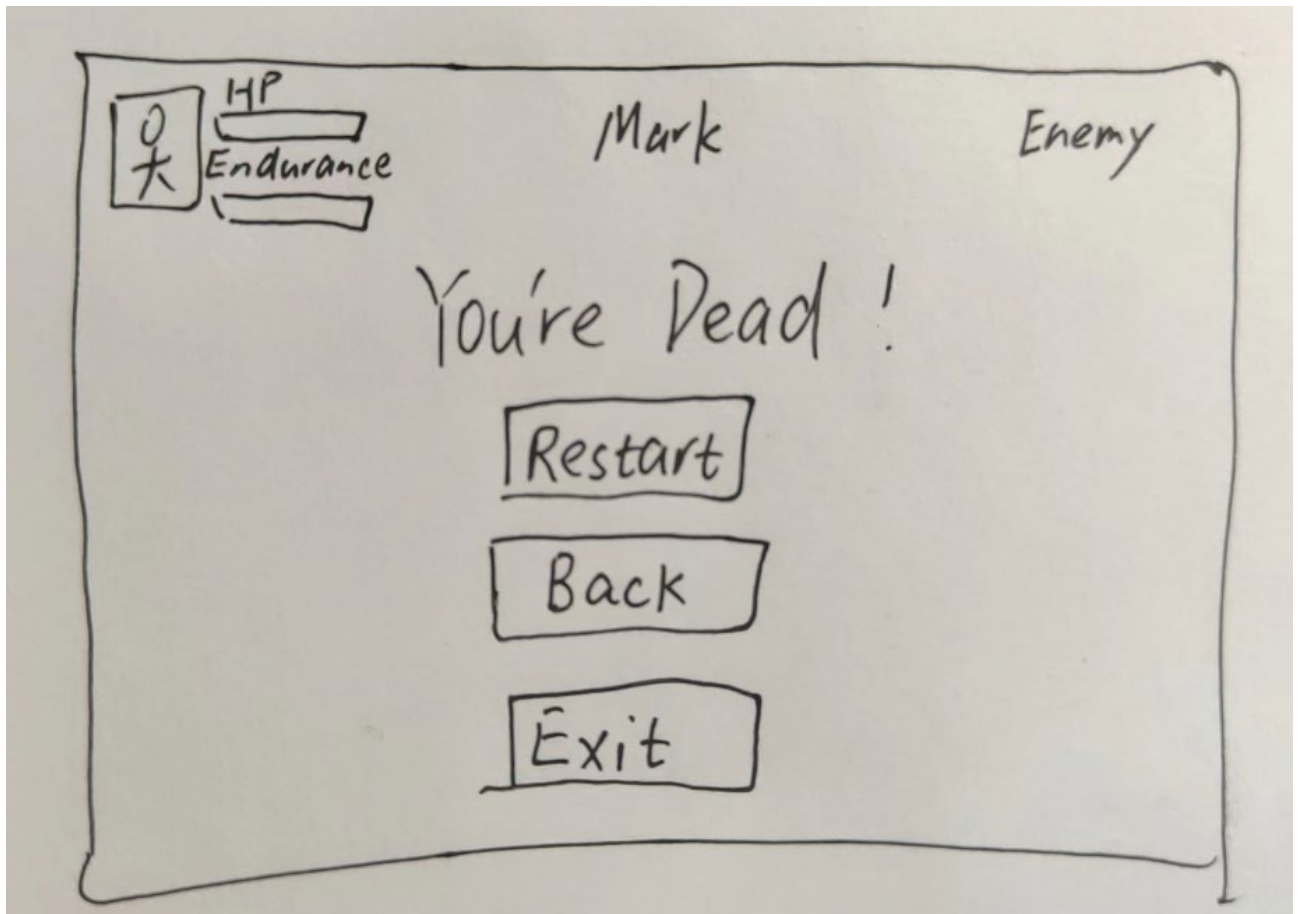 HP
Endurance
Mark
Enemy
You're Dead !
Restart
Back
Exit